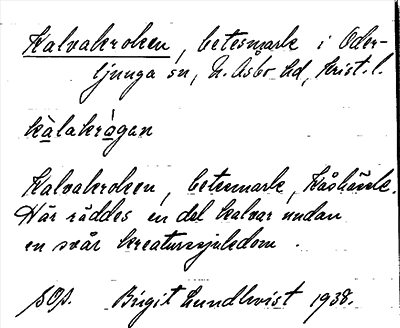 Kalvakroken, betesmark i Oder-
ljunga sn, N. Åsbo hd, Krist. l.
kàlakrågan
Kalvakroken, betesmark, Kåshäsle.
Här räddes en del kalvar undan
en svår kreaturssjukdom.
Birgit Lundkvist 1938.